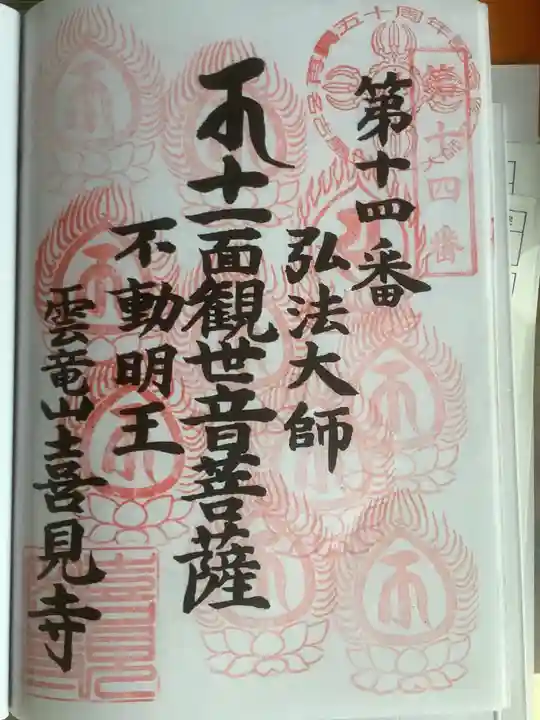 第十四番
弘法大師
十一面観世音菩薩
不動明王
雲竜山喜見寺
十四番
五十周年